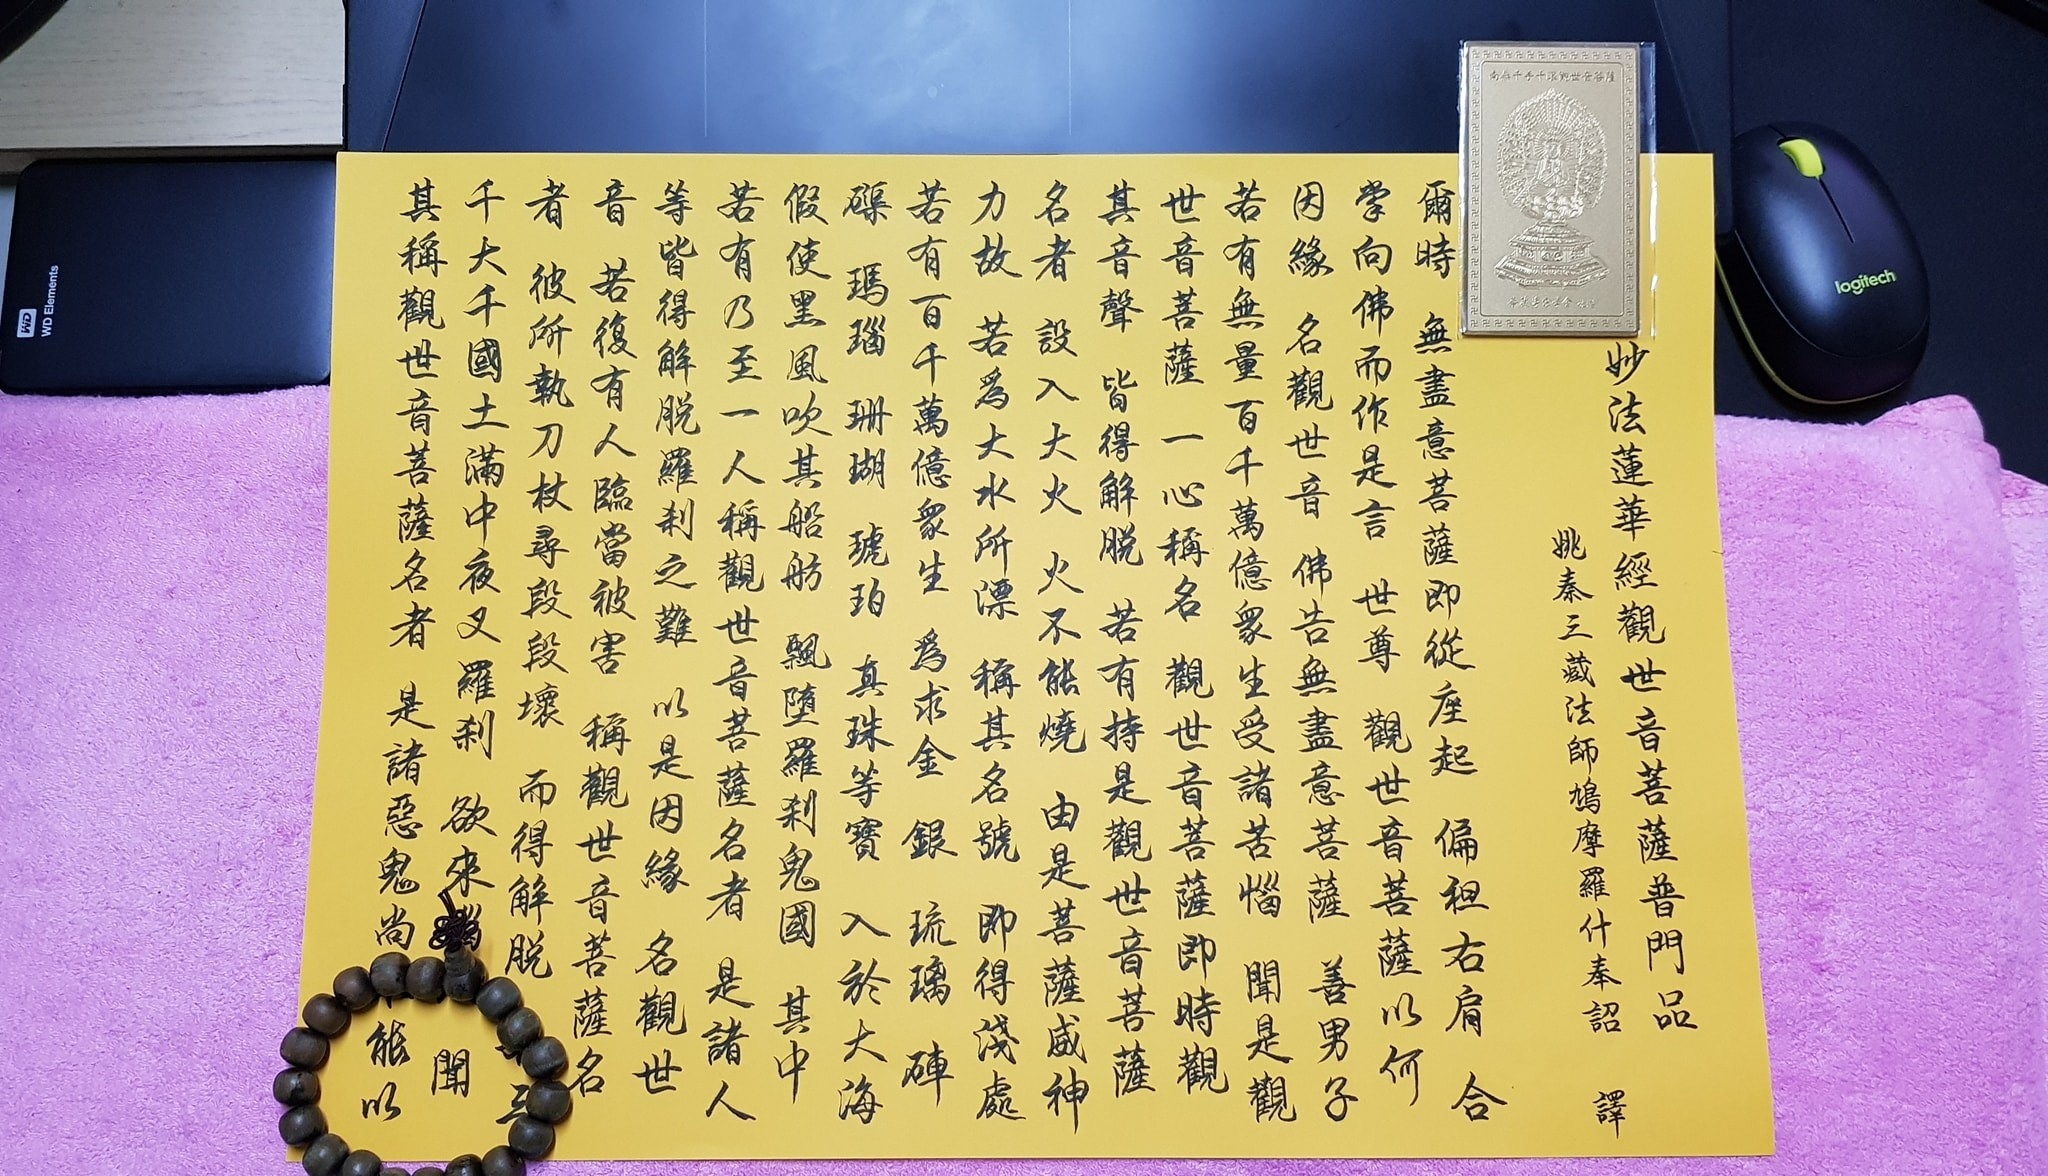 南無千手千眼觀世音菩薩
妙法蓮華經觀世音菩薩普門品
姚秦三藏法師鳩摩羅什奉詔 譯
爾時 無盡意菩薩即從座起 偏袒右肩 合
掌向佛而作是言 世尊 觀世音菩薩以何
因緣 名觀世音 佛告無盡意菩薩 善男子
若有無量百千萬億衆生受諸苦惱 聞是觀
世音菩薩 一心稱名 觀世音菩薩即時觀
其音聲 皆得解脫 若有持是觀世音菩薩
名者 設入大火 火不能燒 由是菩薩威神
力故 若爲大水所漂 稱其名號 即得淺處
若有百千萬億衆生 爲求金 銀 琉璃 硨
磲 瑪瑙 珊瑚 琥珀 真珠等寶 入於大海
假使黑風吹其船舫 飄墮羅剎鬼國 其中
若有乃至一人稱觀世音菩薩名者 是諸人
等皆得解脫羅剎之難 以是因緣 名觀世
音 若復有人臨當被害 稱觀世音菩薩名
者 彼所執刀杖尋段段壞 而得解脫 三
千大千國土滿中夜叉羅剎 欲來 聞
其稱觀世音菩薩名者 是諸惡鬼尚 能以
logitech
WD
WD Elements